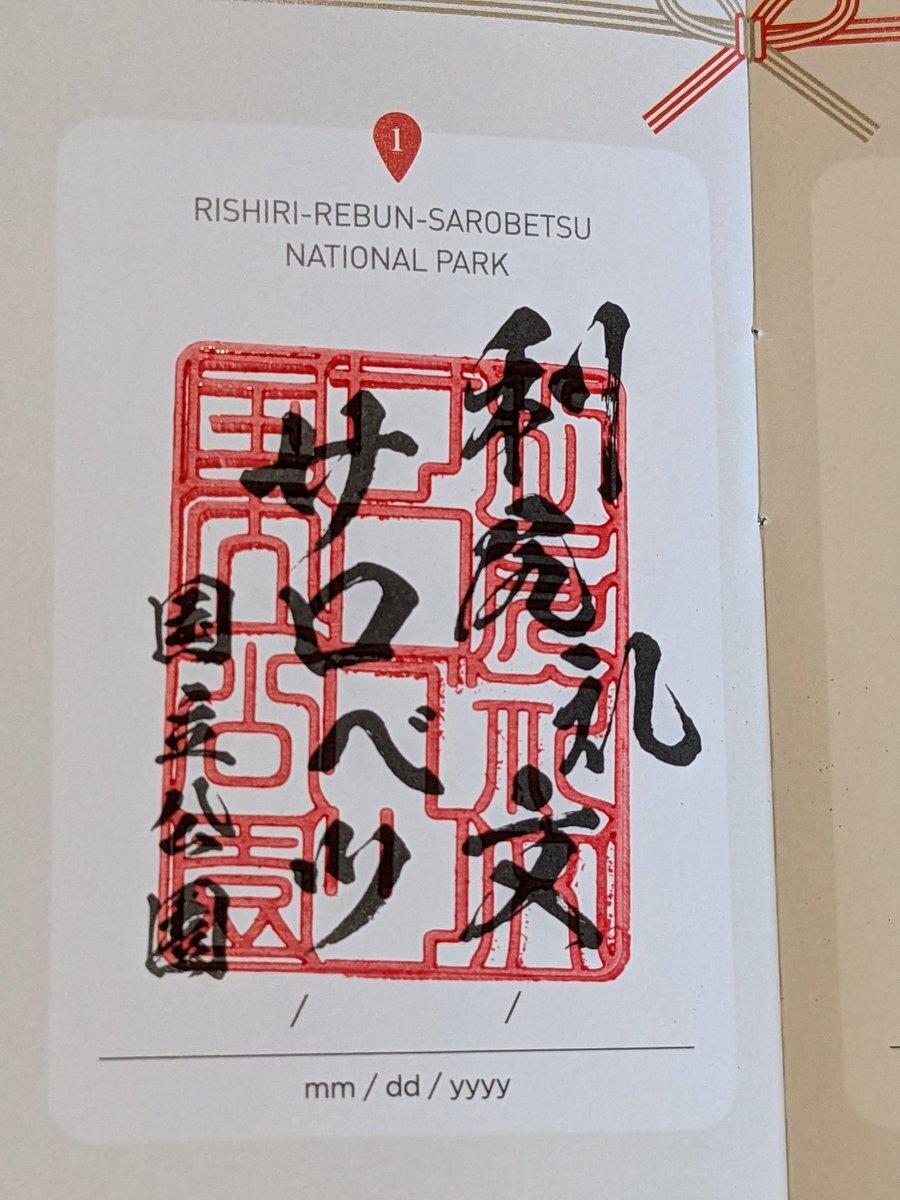 1
RISHIRI-REBUN-SAROBETSU
NATIONAL PARK
利尻礼文
サロベツ
国立公園
/ /
mm / dd / yyyy